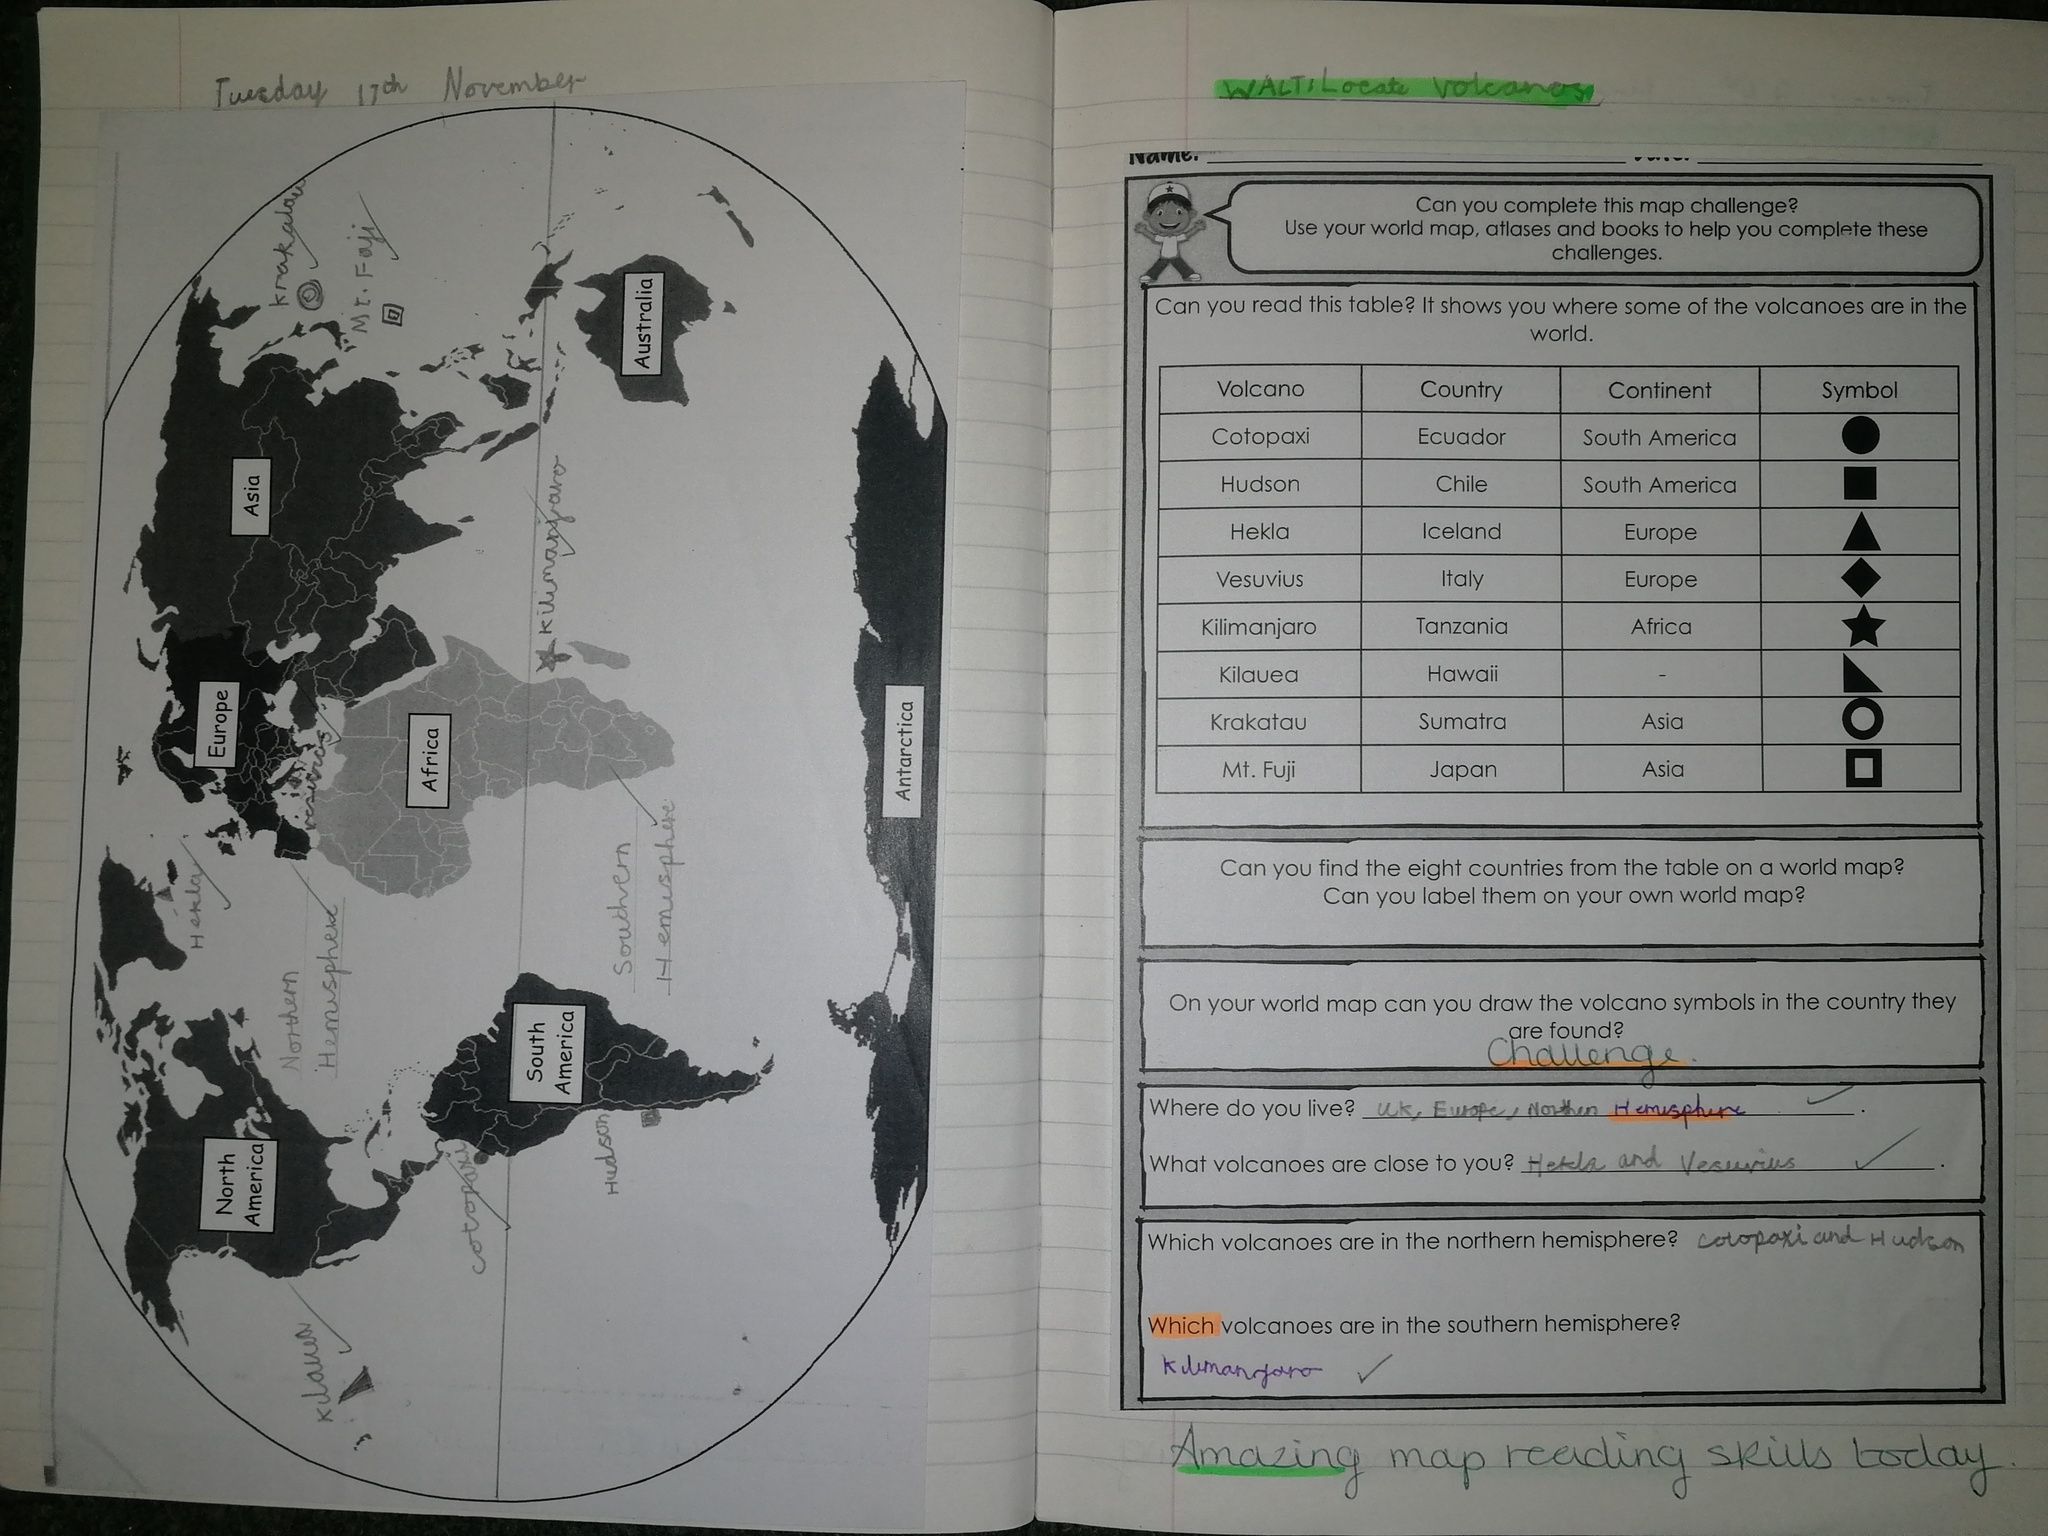 Tuesday 17th November
Krakatau
Mt. Fuji
Australia
Asia
Kilimanjaro
Europe
Vesuvius
Africa
Antarctica
Hekla
Northern
Hemisphere
Southern
Hemisphere
South
America
North
America
Cotopaxi
Hudson
Kilauea
WALT: Locate Volcanos
Name:
Can you complete this map challenge?
Use your world map, atlases and books to help you complete these
challenges.
Can you read this table? It shows you where some of the volcanoes are in the
world.
Volcano Country Continent Symbol
Cotopaxi Ecuador South America
Hudson Chile South America
Hekla Iceland Europe
Vesuvius Italy Europe
Kilimanjaro Tanzania Africa
Kilauea Hawaii -
Krakatau Sumatra Asia
Mt. Fuji Japan Asia
Can you find the eight countries from the table on a world map?
Can you label them on your own world map?
On your world map can you draw the volcano symbols in the country they
are found?
Challenge.
Where do you live? UK, Europe, Northen Hemisphere.
What volcanoes are close to you? Hekla and Vesuvius.
Which volcanoes are in the northern hemisphere? Cotopaxi and Hudson
Which volcanoes are in the southern hemisphere?
Kilimanjaro
Amazing map reading skills today.